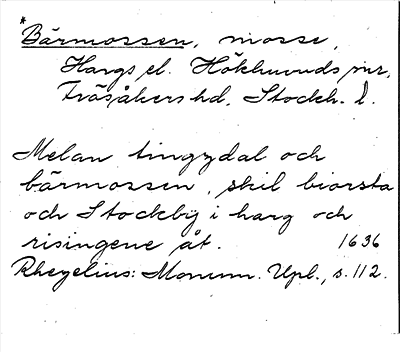 * Bärmossen, mosse,
Hargs el. Hökhuvuds snr,
Fräsåkers hd, Stockh. l.
Melan tingzdal och
bärmossen, skil biorsta
och Stockbÿ i harg och
risingene åt. 1636
Rhezelius: Monum. Upl., s. 112.